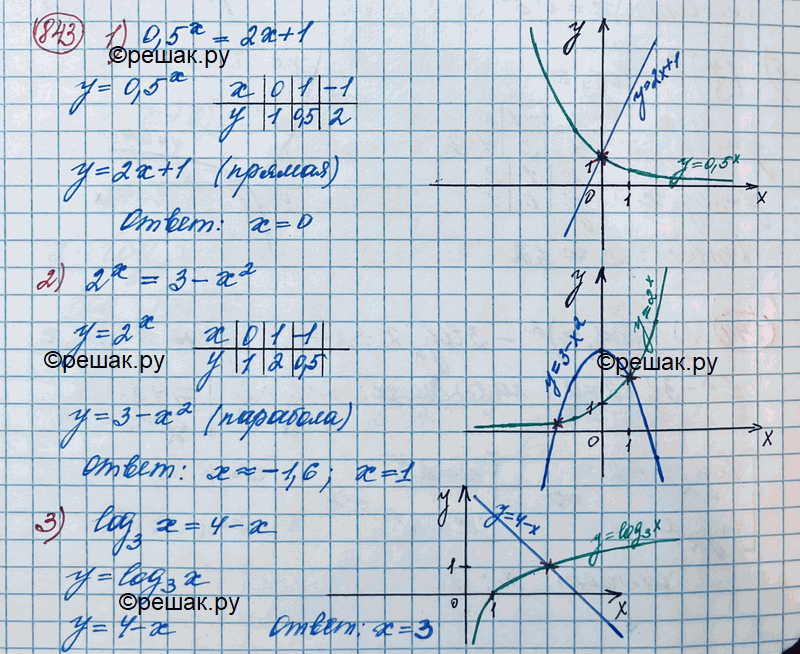 843 1) 0,5^x = 2x+1
©решак.ру
y = 0,5^x
x | 0 | 1 | -1
y | 1 | 0,5 | 2
y = 2x+1 (прямая)
Ответ: x = 0
y
y=2x+1
1
y=0,5^x
0 1 x
2) 2^x = 3 - x²
y = 2^x
x | 0 | 1 | -1
y | 1 | 2 | 0,5
©решак.ру
y = 3 - x² (парабола)
Ответ: x ≈ -1,6; x = 1
y
y=2^x
y=3-x²
©решак.ру
1
0 1 x
3) log₃ x = 4 - x
y = log₃ x
©решак.ру
y = 4 - x
Ответ: x = 3
y
y=4-x
y=log₃x
1
0 1 x